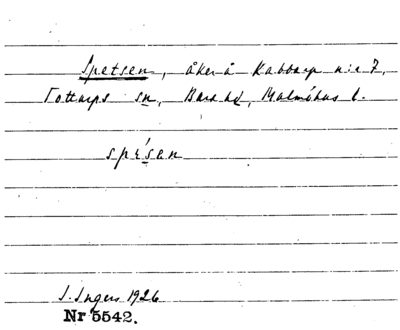 Spetsen, åker å Kabbarp n:r 7,
Tottarps sn, Bara hd, Malmöhus l.
spésen
I. Ingers 1926
Nr 5542.